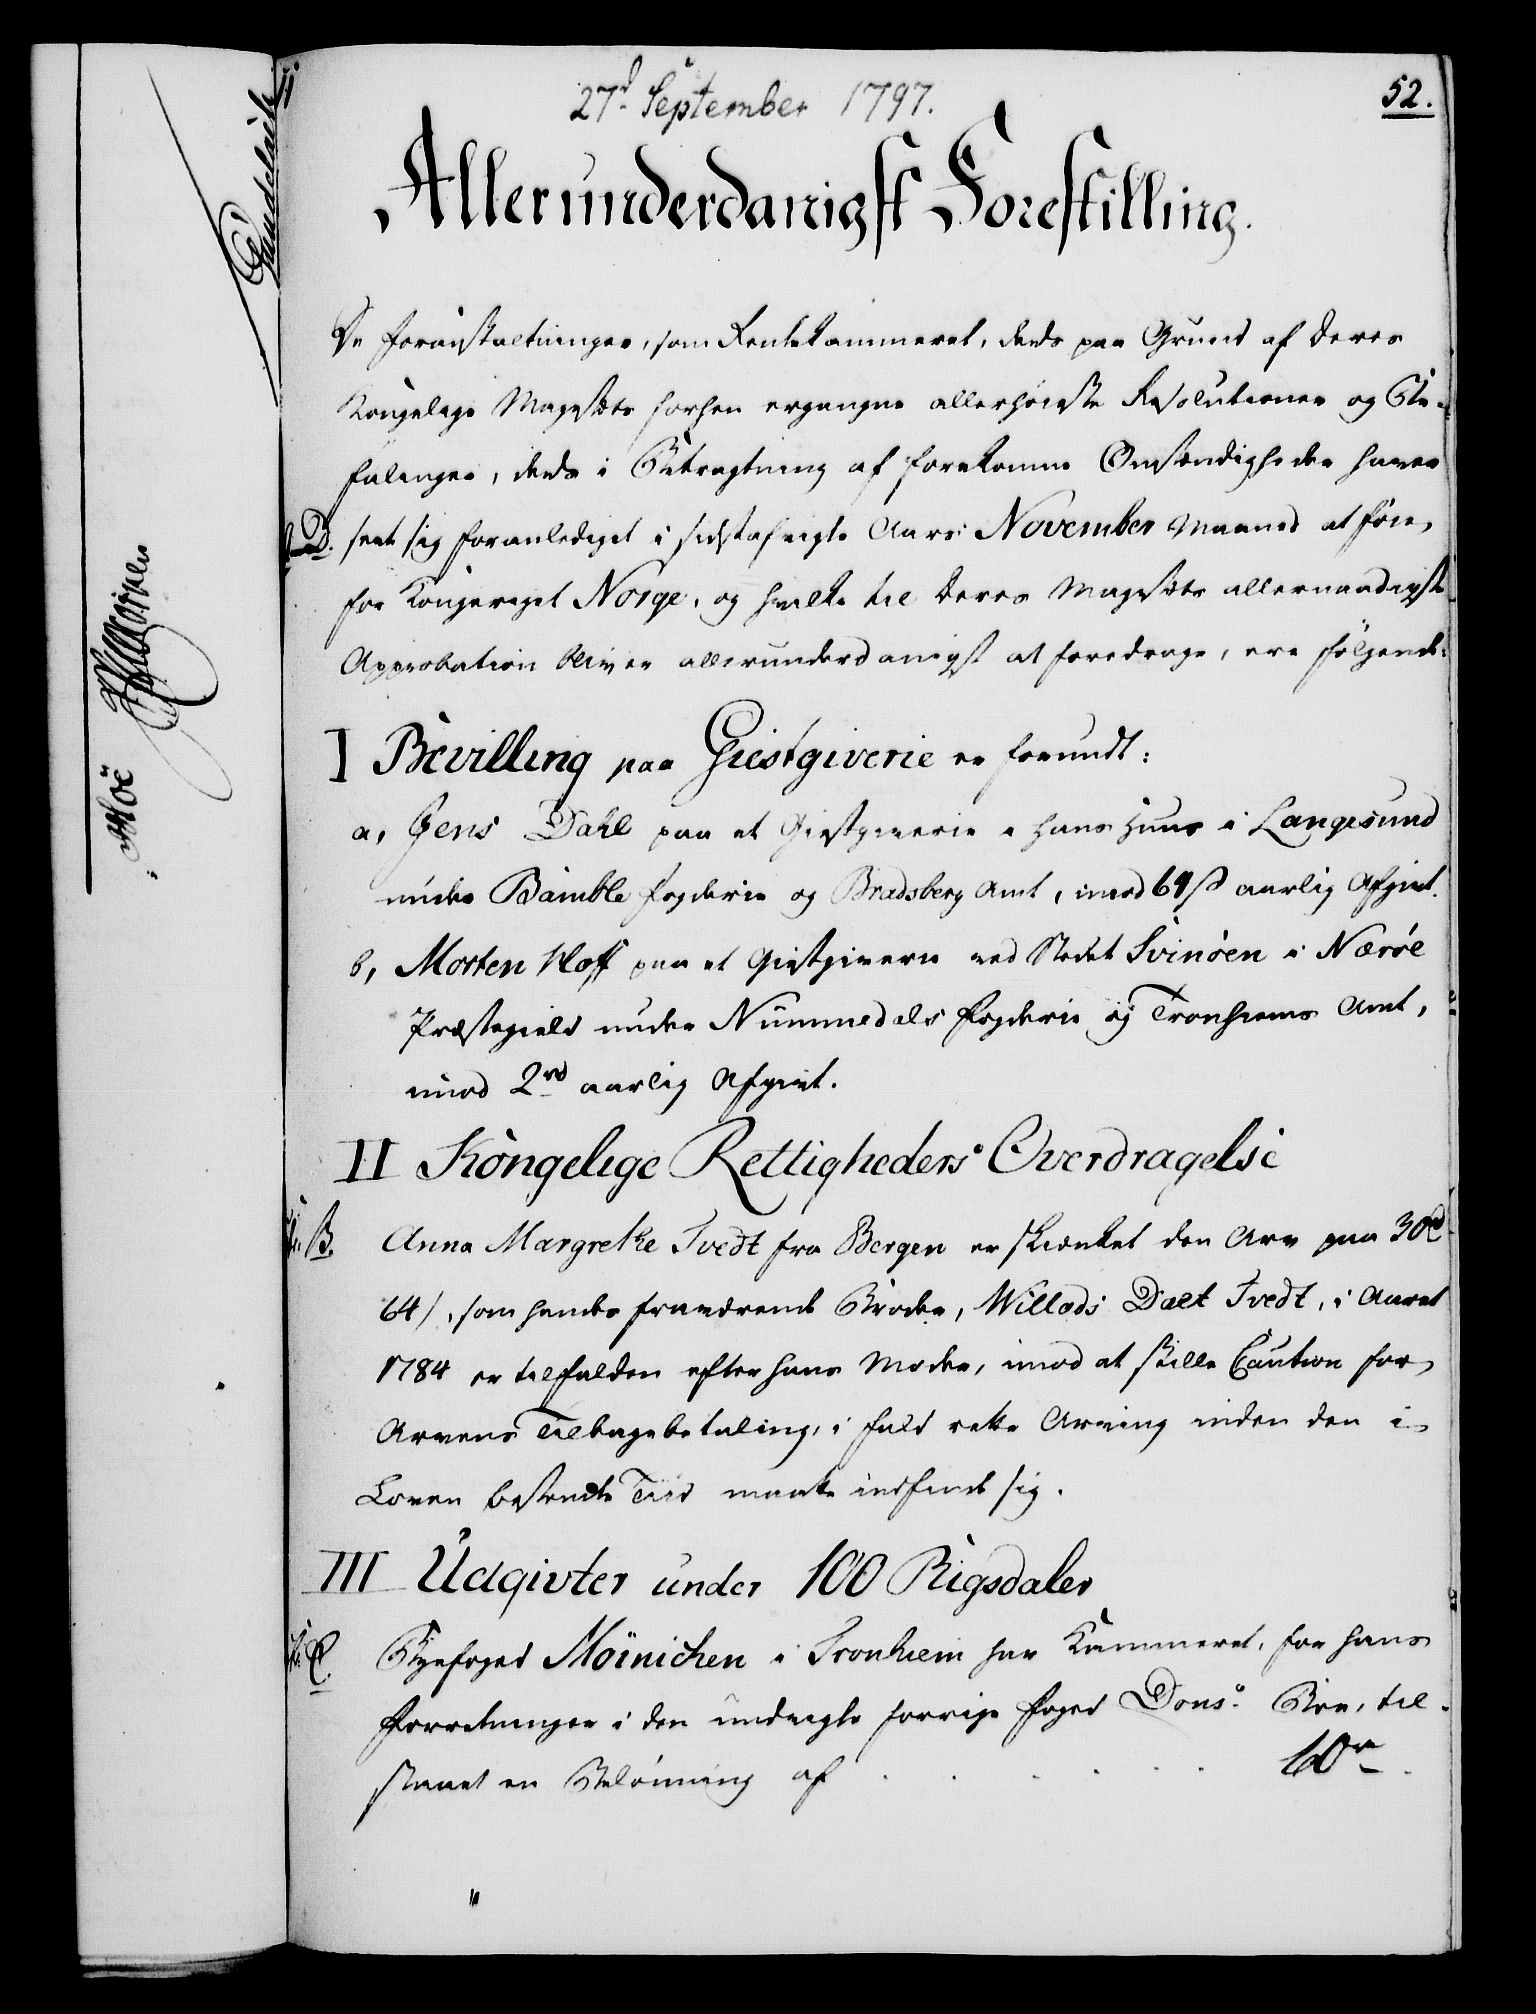 27d. September 1797.
52.
Allerunderdanigst Forestilling.
De Foranstaltninger, som Rentekammeret, deels paa Grund af Deres
Kongelige Majestets forhen ergangne allerhöieste Resolutioner og Be-
falinger, deels i Betragtning af forekomne Omstændigheder haver
seet sig foranlediget i sidstafvigte Aars November Maaned at föie,
for Kongeriget Norge, og hvilke til Deres Majestets allernaadigste
Approbation bliver allerunderdanigst at foredrage, ere fölgende:
I Bevilling paa Giestgiverie er forundt:
a, Jens Dahl paa et Giestgiverie i hans Huus i Langesund
under Bamble Fogderie og Bradsberg Amt, imod 64 ß aarlig Afgivt.
b, Morten Hoff paa et Giestgiverie ved Stedet Svinöen i Næröe
Præstegield under Nummedals Fogderie og Tronhiems Amt,
imod 2 rd aarlig Afgivt.
II Kongelige Rettigheders Overdragelse
B. Anna Margrethe Tvedt fra Bergen er skienket den Arv paa 30 rd
64 ß, som hendes fraværende Broder, Willads Dæl Tvedt, i Aaret
1784 er tilfalden efter hans Moder, imod at stille Caution for
Arvens Tilbagebetaling, i fald rette Arving inden den i
Loven bestemte Tiid maatte indfinde sig.
III Udgivter under 100 Rigsdaler
C. Byefoged Möinichen i Tronhiem har Kammeret, for hans
Forretninger i den undvigte forrige Foged Dons's Boe, til-
staaet en Belönning af . . . . . . 10 r
Möe